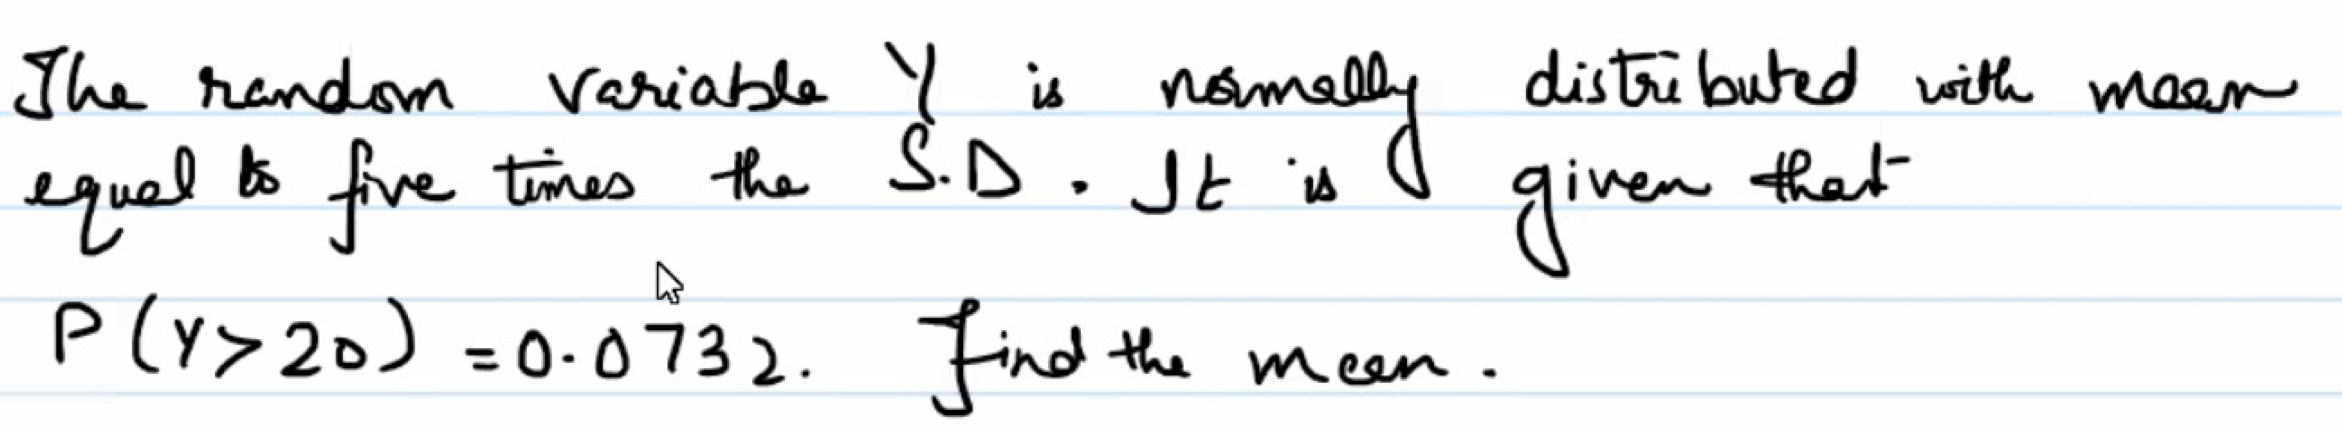 The random variable Y is normally distributed with mean
equal to five times the S.D. It is given that
P(Y>20) = 0.0732. Find the mean.